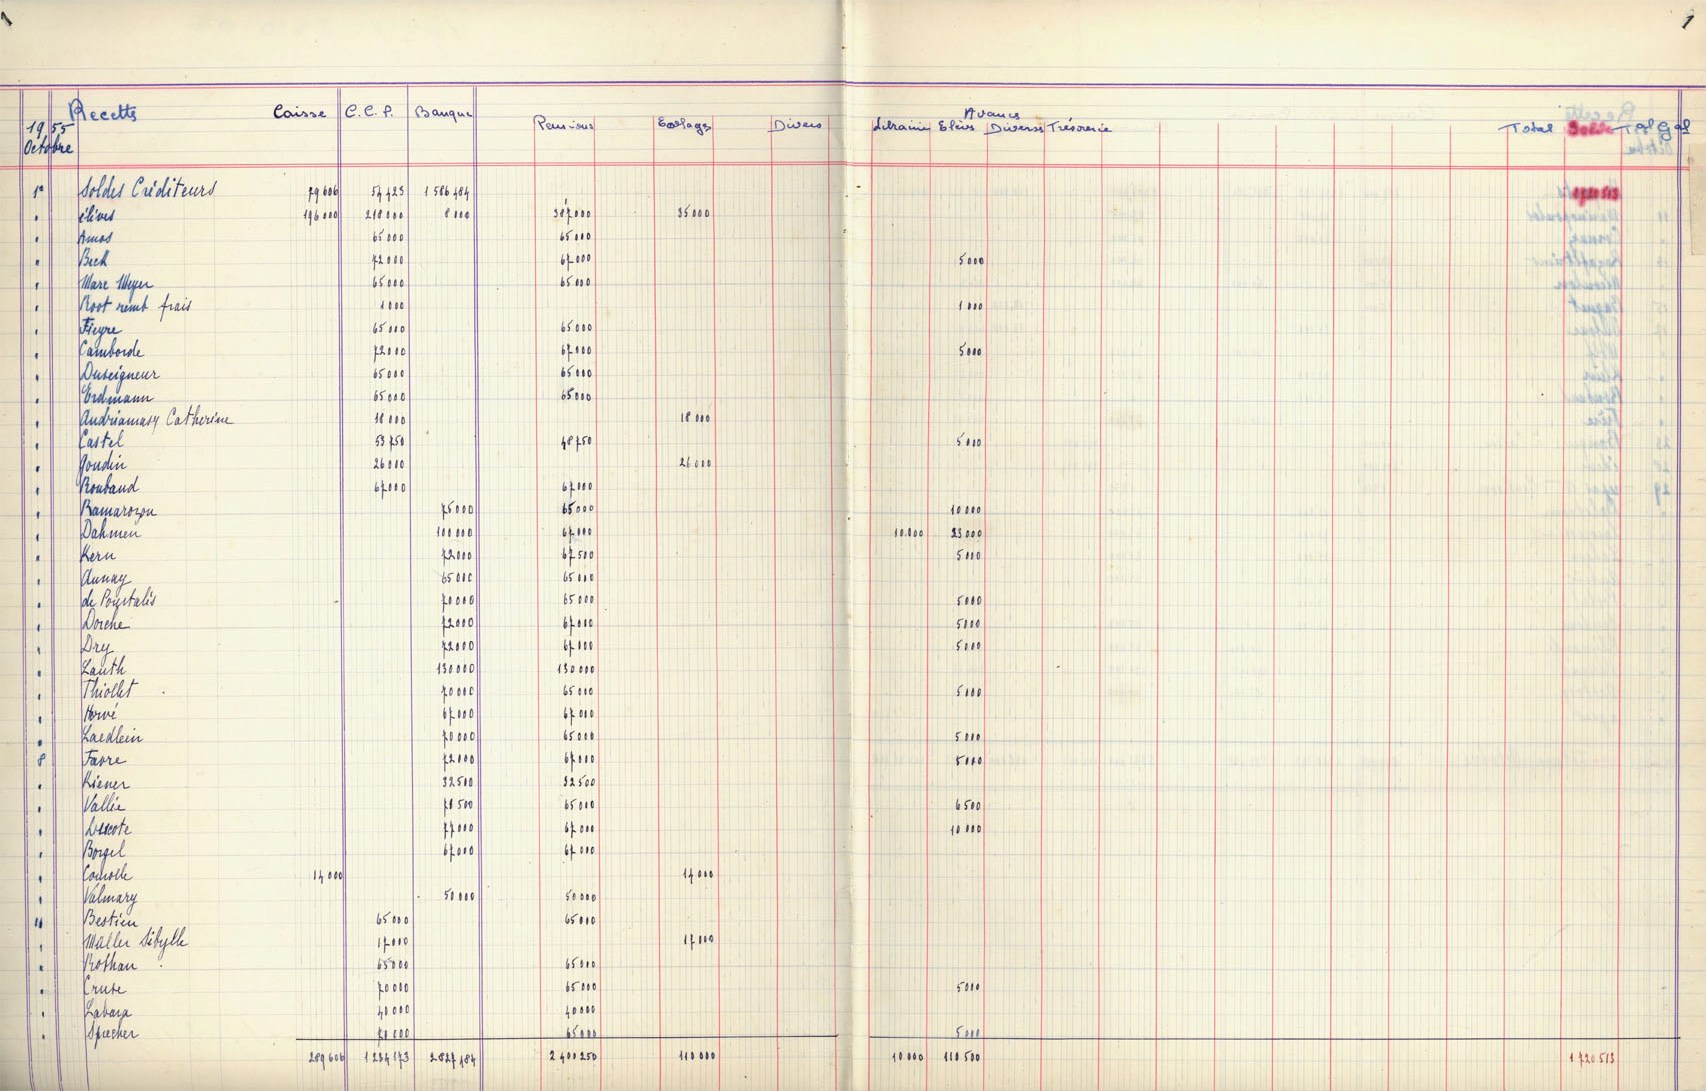 1
Recetts Caisse C.C.P. Banque Avances
1955 Pensions Ecolages Divers Librairie Elèves Diverses Trésorerie Total Solde Tal Gal
Octobre
1er Soldes Créditeurs 79 606 54 423 1 586 484 1720 513
" élèves 196 000 218 000 8 000 387 000 35 000
" Amos 65 000 65 000
" Beck 72 000 67 000 5 000
" Marc Meyer 65 000 65 000
" Root remb frais 1 000 1 000
" Fieyre 65 000 65 000
" Camborde 72 000 67 000 5 000
" Duseigneur 65 000 65 000
" Erdmann 65 000 65 000
" Andriamasy Catherine 18 000 18 000
" Castel 53 750 48 750 5 000
" Goudin 26 000 26 000
" Roubaud 67 000 67 000
" Ramarozou 75 000 65 000 10 000
" Dahmen 100 000 67 000 10 000 23 000
" Kern 72 000 67 500 5 000
" Aunay 65 000 65 000
" de Pourtalès 70 000 65 000 5 000
" Dorche 72 000 67 000 5 000
" Dry 72 000 67 000 5 000
" Lauth 130 000 130 000
" Thiollet 70 000 65 000 5 000
" Hervé 67 000 67 000
" Laedlein 70 000 65 000 5 000
8 Favre 72 000 67 000 5 000
" Kiener 32 500 32 500
" Vallée 71 500 65 000 6 500
" Lescote 77 000 67 000 10 000
" Borgel 67 000 67 000
" 14 000 14 000
" Valmary 50 000 50 000
11 Bestien 65 000 65 000
" Muller Sibylle 17 000 17 000
" Rothan 65 000 65 000
" Cruse 70 000 65 000 5 000
" Labara 40 000 40 000
" Sprecher 70 000 65 000 5 000
289 606 1 234 173 2 827 484 2 400 250 110 000 10 000 110 500 1 720 513